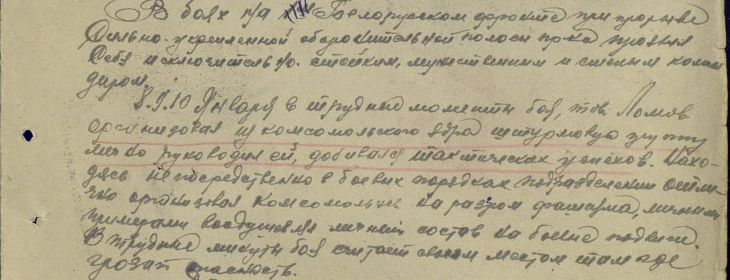 В боях на Белорусском фронте при прорыве
сильно-укрепленной оборонительной полосы пр-ка проявил
себя исключительно стойким, мужественным и смелым коман
диром.
8.9.10 Января в трудные моменты боя, тов. Ломов
организовал из комсомольского ядра штурмовую группу
лично руководил ей, добивался тактических успехов. Нахо-
дясь непосредственно в боевых порядках подразделений отли
чно организовал комсомольцев на разгром фашизма, личным
примером воодушевлял личный состав на боевые подвиги.
В трудные минуты боя считает своим местом там где
грозит опасность.